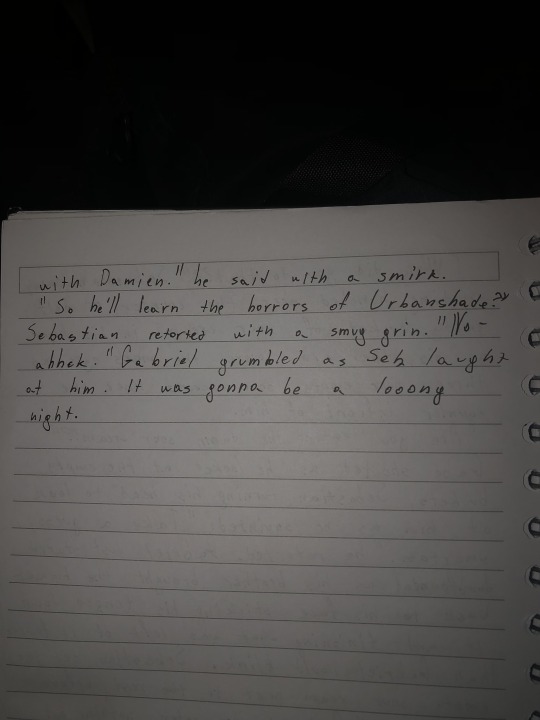 with Damien." he said with a smirk.
"So he'll learn the horrors of Urbanshade?"
Sebastian retorted with a smug grin. "No-
ahhck." Gabriel grumbled as Seb laught
at him. It was gonna be a looong
night.